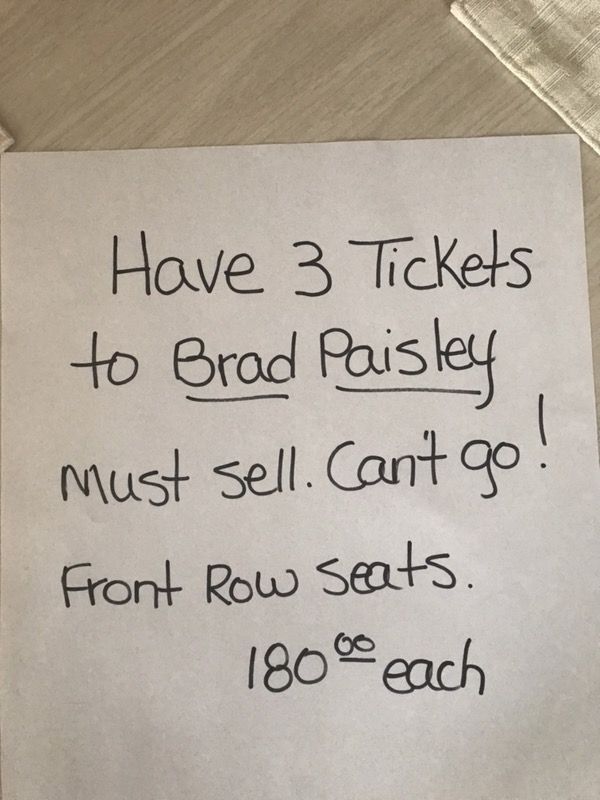 Have 3 Tickets
to Brad Paisley
Must sell. Can't go!
Front Row Seats.
180⁰⁰ each